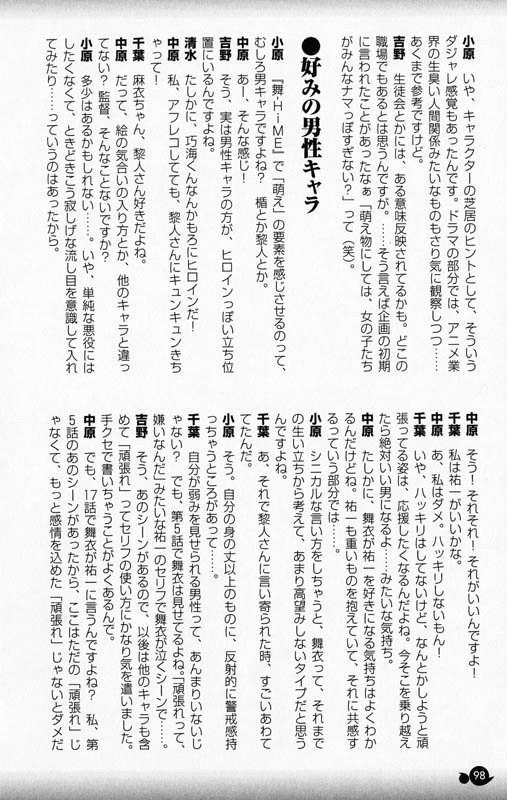 小原　いや、キャラクターの芝居のヒントとして、そういう
ダジャレ感覚もあったんです。ドラマの部分では、アニメ業
界の生臭い人間関係みたいなものもさり気に観察しつつ……
あくまで参考ですけど。
吉野　生徒会とかには、ある意味反映されてるかも。どこの
職場でもあるとは思うんですが。……そう言えば企画の初期
に言われたことがあったなぁ「萌え物にしては、女の子たち
がみんなナマっぽすぎない？」って（笑）。
●好みの男性キャラ
小原　『舞-HiME』で「萌え」の要素を感じさせるのって、
むしろ男キャラですよね？　楯とか黎人とか。
中原　あー、そんな感じ！
吉野　そう、実は男性キャラの方が、ヒロインっぽい立ち位
置にいるんですよね。
清水　たしかに、巧海くんなんかもろにヒロインだ！
中原　私、アフレコしてても、黎人さんにキュンキュンきち
ゃって！
千葉　麻衣ちゃん、黎人さん好きだよね。
中原　だって、絵の気合いの入り方とか、他のキャラと違っ
てない？　監督、そんなことないですか？
小原　多少はあるかもしれない……。いや、単純な悪役には
したくなくて、ときどきこう寂しげな流し目を意識して入れ
てみたり……っていうのはあったから。
中原　そう！それそれ！　それがいいんですよ！
千葉　私は祐一がいいかな。
中原　あ、私はダメ。ハッキリしないもん！
千葉　いや、ハッキリはしてないけど、なんとかしようと頑
張ってる姿は、応援したくなるんだよね。今そこを乗り越え
たら絶対いい男になるよ……みたいな気持ち。
中原　たしかに、舞衣が祐一を好きになる気持ちはよくわか
るんだけどね。祐一も重いものを抱えていて、それに共感す
るっていう部分では……。
小原　シニカルな言い方をしちゃうと、舞衣って、それまで
の生い立ちから考えて、あまり高望みしないタイプだと思う
んですよね。
千葉　あ、それで黎人さんに言い寄られた時、すごいあわて
てたんだ。
小原　そう。自分の身の丈以上のものに、反射的に警戒感持
っちゃうところがあって……。
千葉　自分が弱みを見せられる男性って、あんまりいないじ
ゃない？　でも、第5話で舞衣は見せてるよね。「頑張れって、
嫌いなんだ」みたいな祐一のセリフで舞衣が泣くシーンで……。
吉野　そう、あのシーンがあるので、以後は他のキャラも含
めて「頑張れ」ってセリフの使い方にかなり気を遣いました。
手クセで書いちゃうことがよくあるんで。
中原　でも、17話で舞衣が祐一に言うんですよね？　私、第
5話のあのシーンがあったから、ここはただの「頑張れ」じ
ゃなくて、もっと感情を込めた「頑張れ」じゃないとダメだ
98